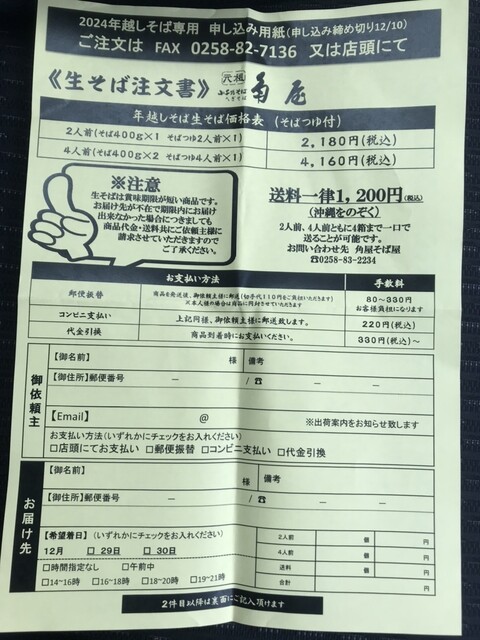 2024年越しそば専用 申し込み用紙(申し込み締め切り12/10)
ご注文は FAX 0258-82-7136 又は店頭にて
《生そば注文書》 元祖 小千谷そば へぎそば 角屋
年越しそば生そば価格表 (そばつゆ付)
2人前(そば400g×1 そばつゆ2人前×1) 2,180円(税込)
4人前(そば400g×2 そばつゆ4人前×1) 4,160円(税込)
※注意
生そばは賞味期限が短い商品です。
お届け先が不在で期限内にお届け
出来なかった場合につきましても
商品代金・送料共にご依頼主様に
請求させていただきますので
ご了承ください。
送料一律1,200円(税込)
(沖縄をのぞく)
2人前、4人前ともに4箱まで一口で
送ることが可能です。
お問い合わせ先 角屋そば屋
☎0258-83-2234
お支払い方法 手数料
郵便振替 商品を発送後、御依頼主様に郵送(切手代110円をご負担いただきます) ※ご本人様の場合は商品に同封させていただきます 80~330円 お客様負担になります
コンビニ支払い 上記同様、御依頼主様に郵送致します。 220円(税込)
代金引換 商品到着時にお支払いください。 330円(税込)~
御依頼主
【御名前】 様 備考
【御住所】郵便番号 - /☎ - -
【Email】 @ ※出荷案内をお知らせ致します
お支払い方法(いずれかにチェックをお入れください)
□店頭にてお支払い □郵便振替 □コンビニ支払い □代金引換
お届け先
【御名前】 様 備考
【御住所】郵便番号 - /☎ - -
【希望着日】(いずれかにチェックをお入れください)
12月 □ 29日 □ 30日
□時間指定なし □午前中
□14~16時 □16~18時 □18~20時 □19~21時
2人前 個 円
4人前 個 円
送料 個 円
合計 円
2件目以降は裏面にご記入頂けます